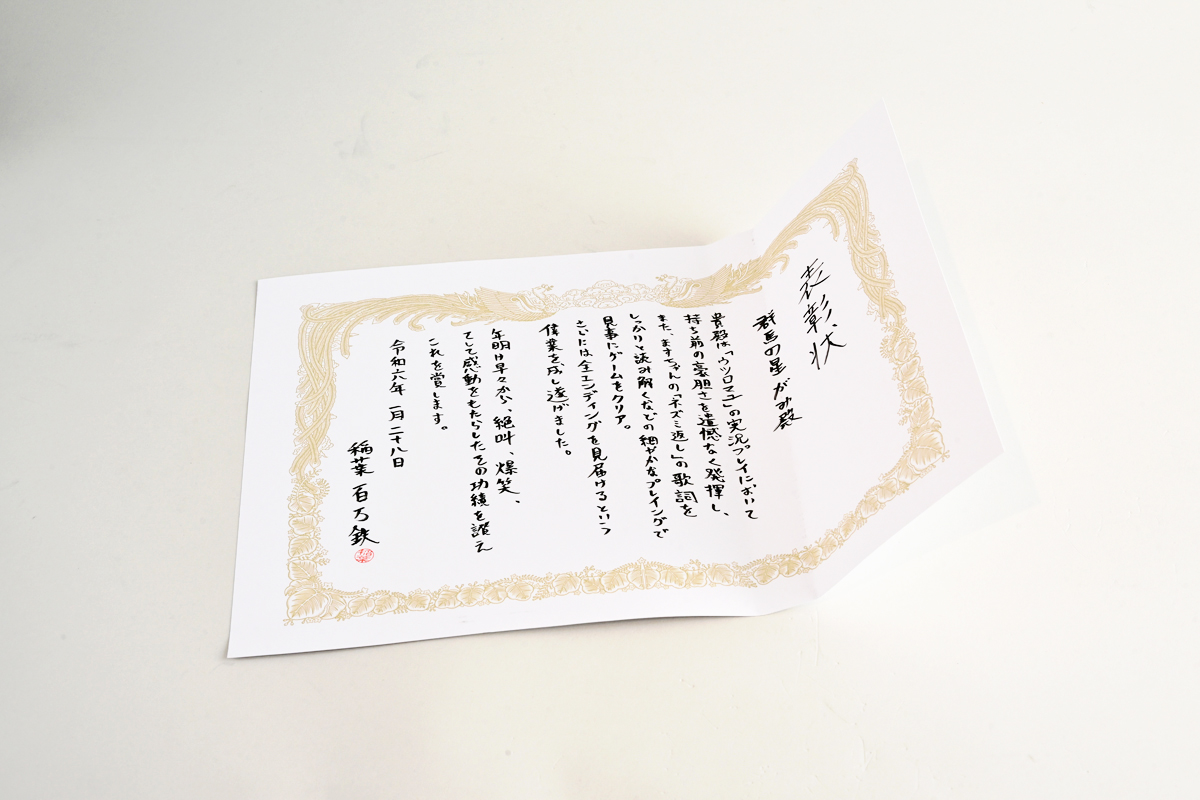 表彰状
群馬の星 がみ殿
貴殿は「ウツロマユ」の実況プレイにおいて
持ち前の豪胆さを遺憾なく発揮し、
また、ますちゃんの「ネズミ返し」の歌詞を
しっかりと読み解くなどの細やかなプレイングで
見事にゲームをクリア。
さいには全エンディングを見届けるという
偉業を成し遂げました。
年明け早々から、絶叫、爆笑、
そして感動をもたらしたその功績を讃え
これを賞します。
令和六年 一月二十八日
稲葉百万鉄